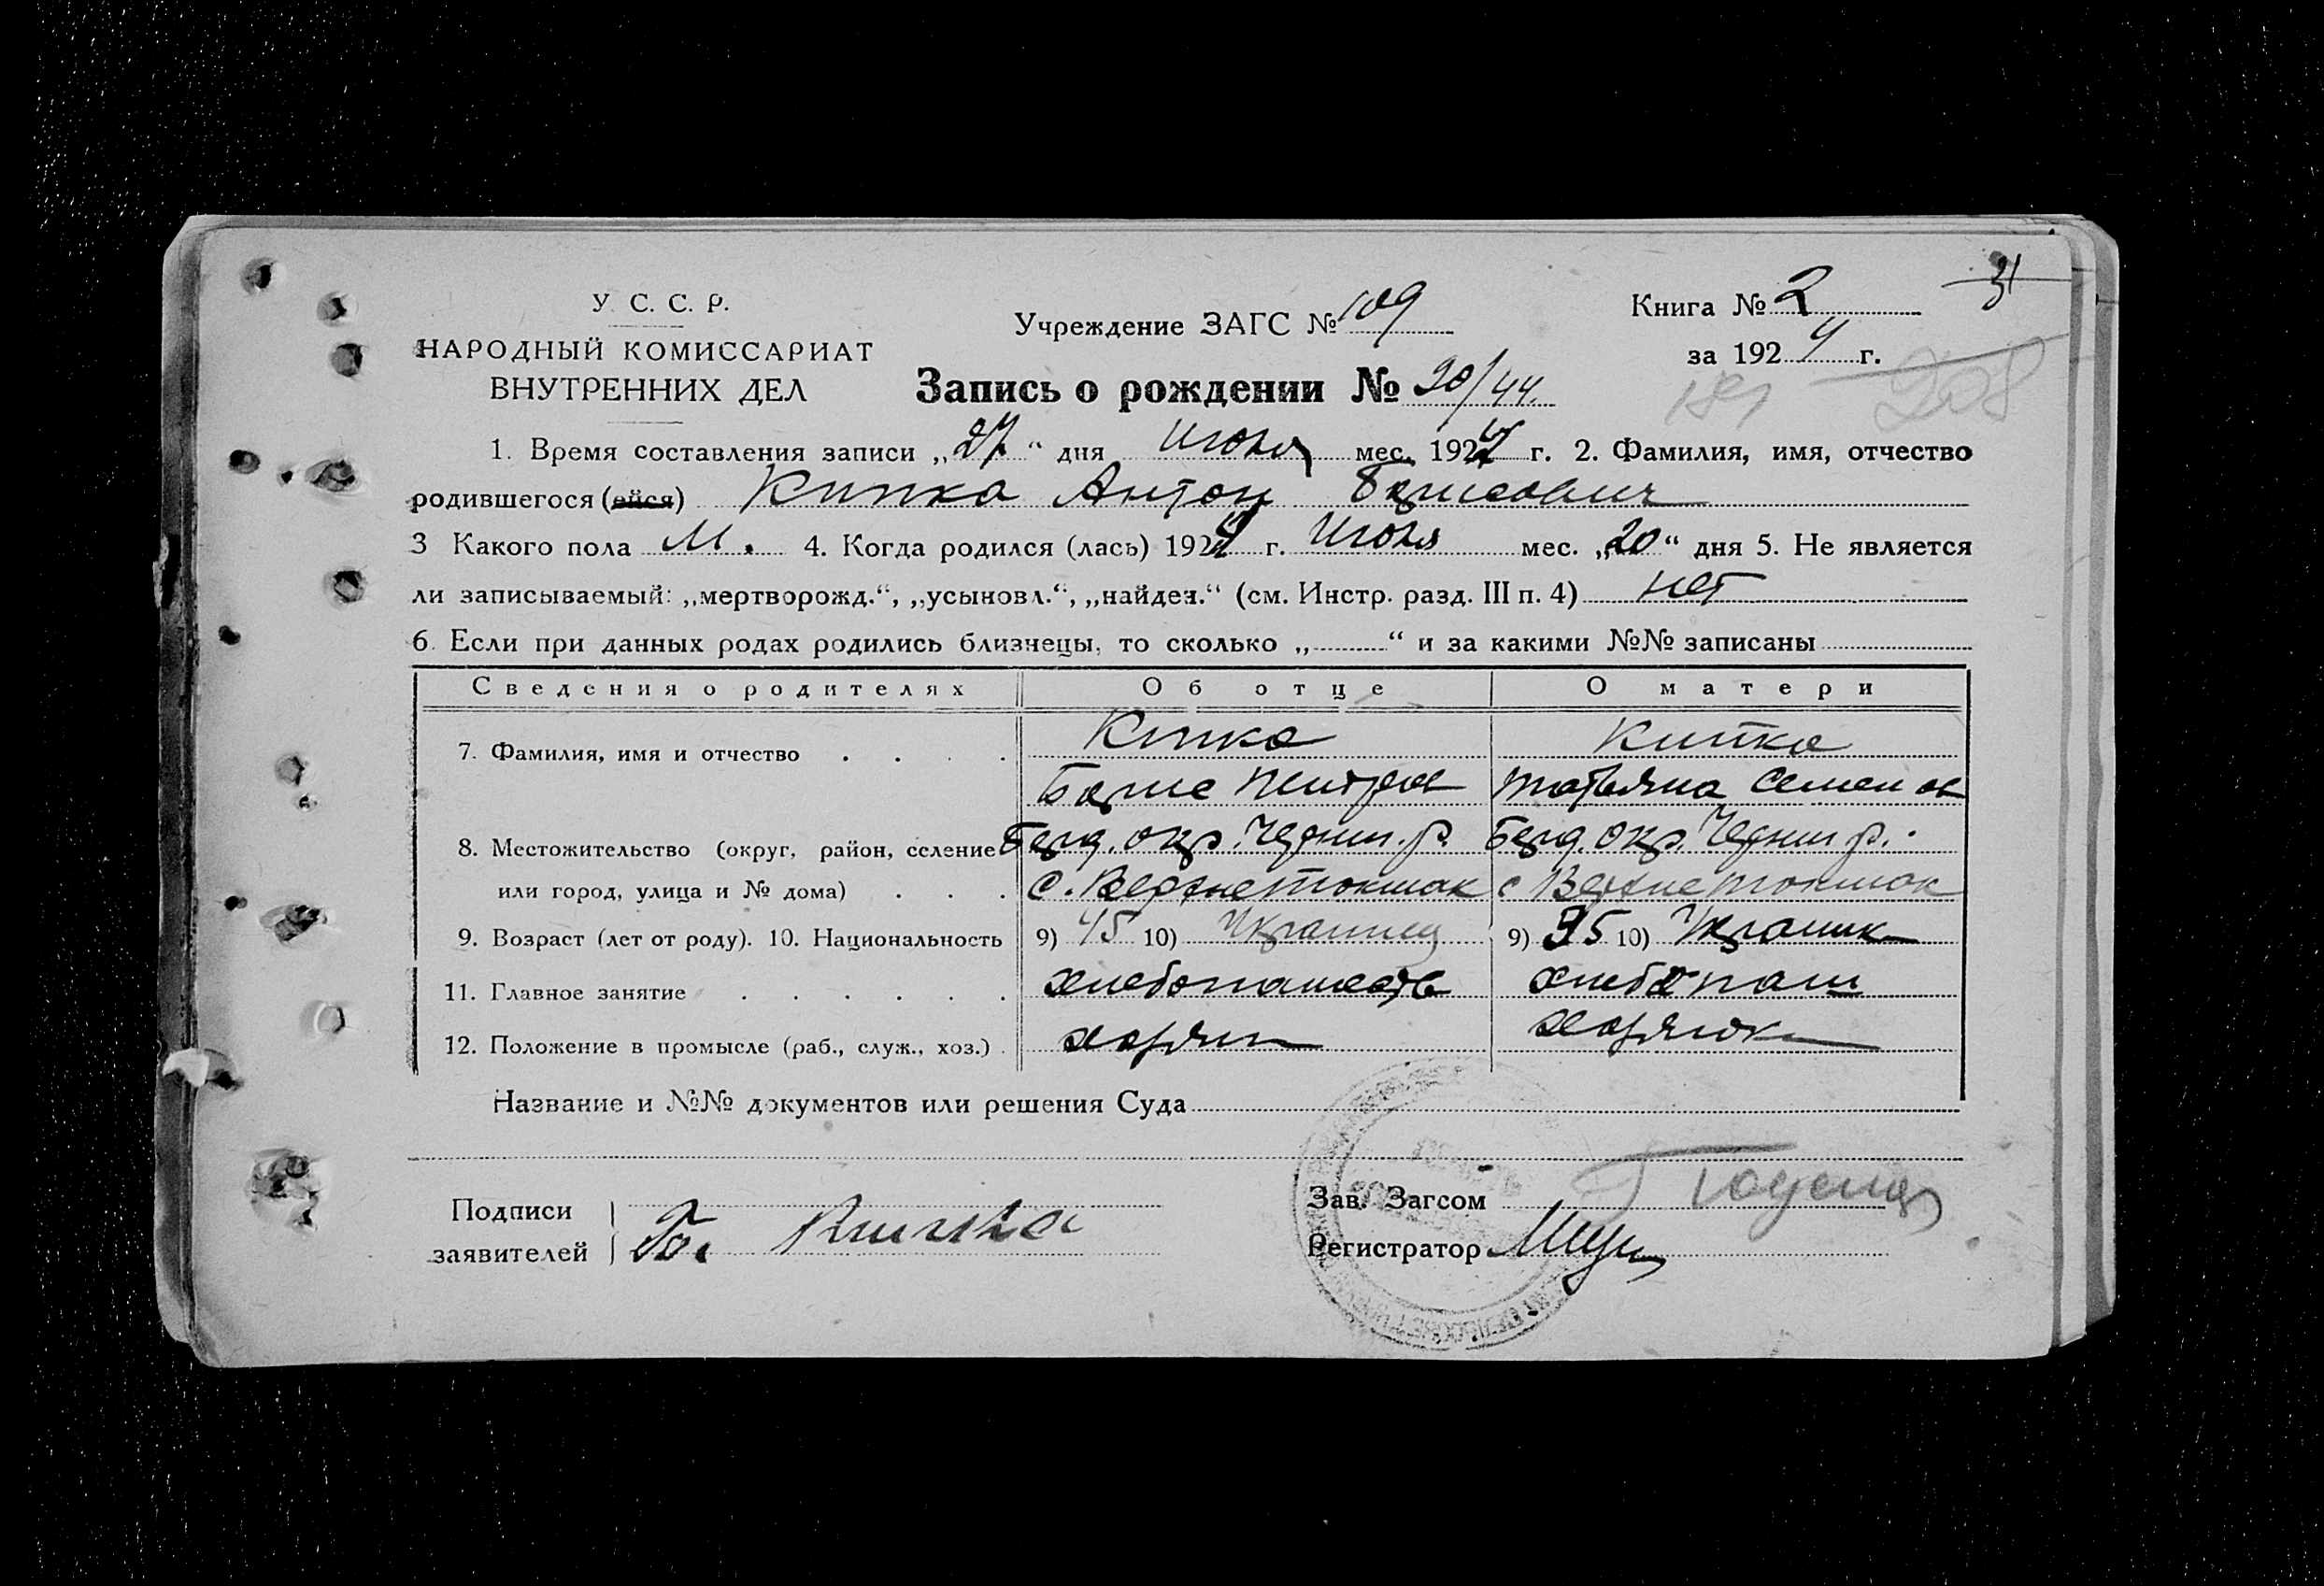 31
У. С. С. Р.
НАРОДНЫЙ КОМИССАРИАТ
ВНУТРЕННИХ ДЕЛ
Учреждение ЗАГС № 109
Книга № 2
за 1924 г.
Запись о рождении № 20/44.
181 208
1. Время составления записи „27“ дня июля мес. 1924 г. 2. Фамилия, имя, отчество
родившегося (ейся) Кипка Антон Борисович
3 Какого пола М. 4. Когда родился (лась) 1924 г. Июля мес. „20“ дня 5. Не является
ли записываемый: „мертворожд.“, „усыновл.“, „найден.“ (см. Инстр. разд. III п. 4) нет
6. Если при данных родах родились близнецы, то сколько „ “ и за какими №№ записаны
Сведения о родителях Об отце О матери
7. Фамилия, имя и отчество Кипка Кипка
Борис Петров Татьяна Семенов
8. Местожительство (округ, район, селение Берд. окр. Черниг. р. Берд. окр. Черниг р.
или город, улица и № дома) с. Верхнетокмак с Верхнетокмак
9. Возраст (лет от роду). 10. Национальность 9) 45 10) Украинец 9) 35 10) Украинк
11. Главное занятие хлебопашеств хлебопаш
12. Положение в промысле (раб., служ., хоз.) хозяин хозяюк
Название и №№ документов или решения Суда
Подписи
заявителей Б. Кипка
Зав. Загсом
Регистратор